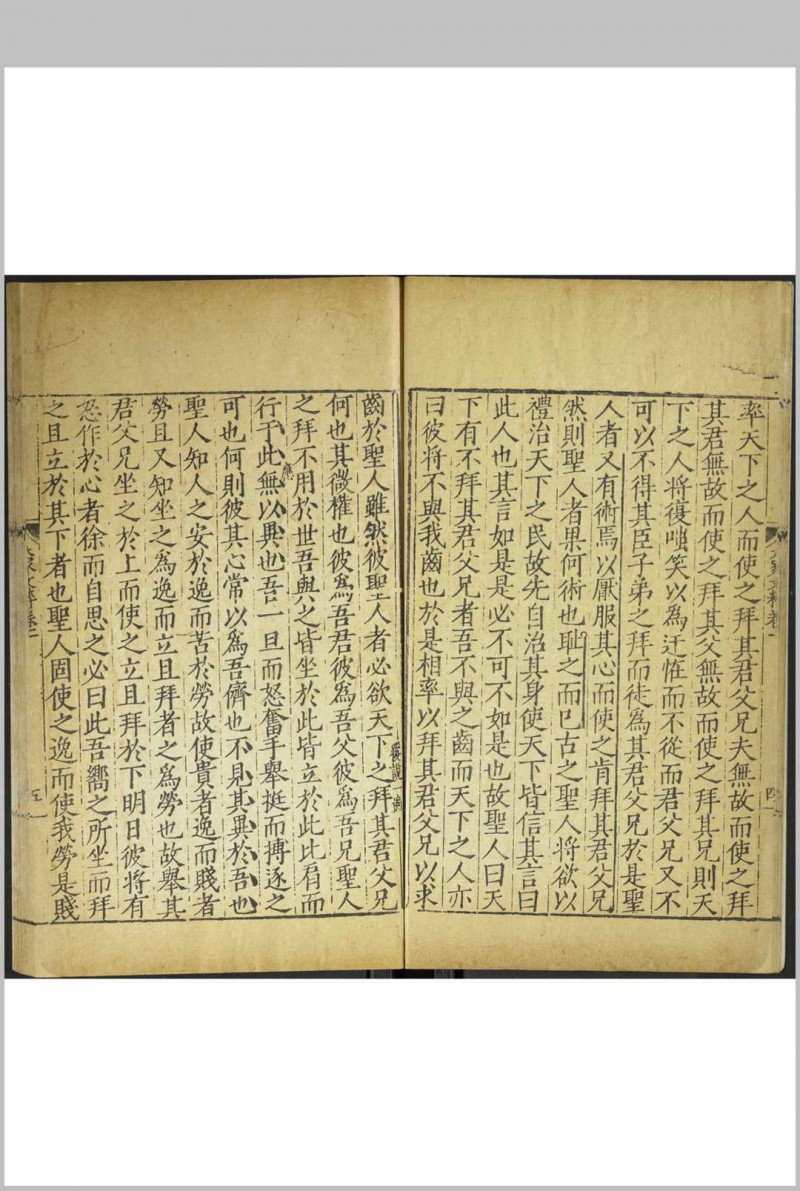 率天下之人而使之拜其君父兄夫無故而使之拜
其君無故而使之拜其父無故而使之拜其兄則天
下之人將復嗤笑以為迂恠而不從而君父兄又不
可以不得其臣子弟之拜而徒為其君父兄於是聖
人者又有術焉以厭服其心而使之肯拜其君父兄
然則聖人者果何術也耻之而已古之聖人將欲以
禮治天下之民故先自治其身使天下皆信其言曰
此人也其言如是是必不可不如是也故聖人曰天
下有不拜其君父兄者吾不與之齒而天下之人亦
曰彼將不與我齒也於是相率以拜其君父兄以求
四
齒於聖人雖然彼聖人者必欲天下之拜其君父兄
何也其微權也彼為吾君彼為吾父彼為吾兄聖人
之拜不用於世吾與之皆坐於此皆立於此比肩而
行于此無以異也吾一旦而怒奮手舉挺而搏逐之
可也何則彼其心常以為吾儕也不見其異於吾也
聖人知人之安於逸而苦於勞故使貴者逸而賤者
勞且又知坐之為逸而立且拜者之為勞也故舉其
君父兄坐之於上而使之立且拜於下明日彼將有
怒作於心者徐而自思之必曰此吾嚮之所坐而拜
之且立於其下者也聖人固使之逸而使我勞是賤
五